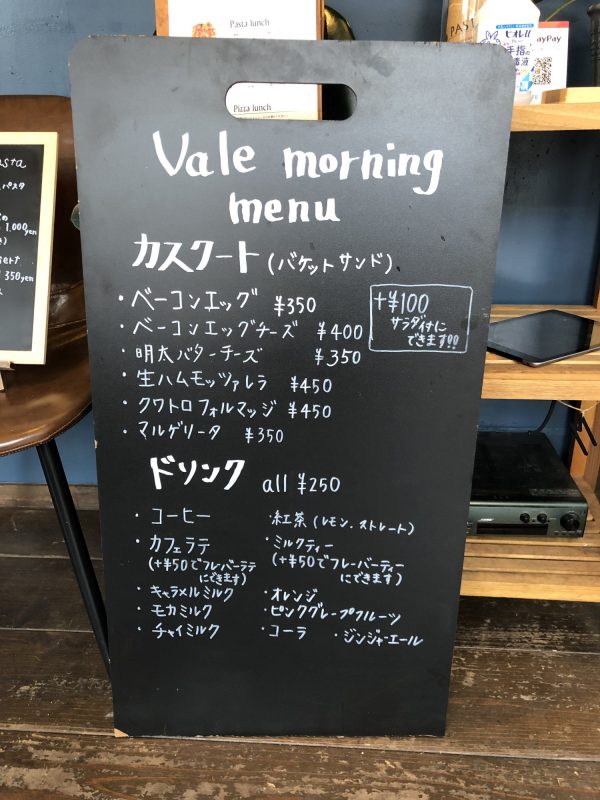 Pasta lunch
Pizza lunch
PayPay
Vale morning
menu
カスクート (バケットサンド)
・ベーコンエッグ ¥350
・ベーコンエッグチーズ ¥400
・明太バターチーズ ¥350
・生ハムモッツァレラ ¥450
・クワトロフォルマッジ ¥450
・マルゲリータ ¥350
+¥100
サラダ付に
できます!!
ドリンク all ¥250
・コーヒー
・カフェラテ
(+¥50でフレーバーラテ
にできます)
・キャラメルミルク
・モカミルク
・チャイミルク
・紅茶 (レモン.ストレート)
・ミルクティー
(+¥50でフレーバーティー
にできます)
・オレンジ
・ピンクグレープフルーツ
・コーラ ・ジンジャーエール
パスタ
1,000yen
350yen